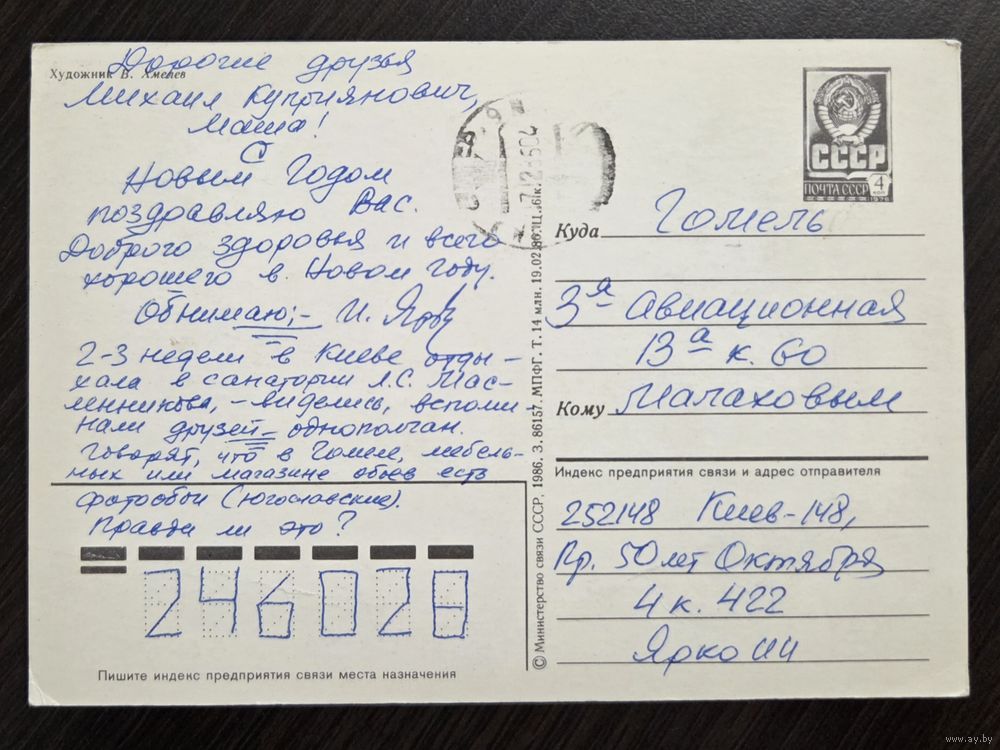 Художник В. Хмелев
Дорогие друзья
Михаил Куприянович,
Маша!
С
Новым Годом
поздравляю Вас.
Доброго здоровья и всего
хорошего в Новом году.
Обнимаю;- И.
2-3 недели в Киеве отды-
хала в санатории Л.С. Мас-
ленникова, - виделись, вспоми-
нали друзей - однополчан.
Говорят, что в Гомеле, мебель-
ных или магазине обоев есть
фотообои (югославские).
Правда ли это?
246028
Пишите индекс предприятия связи места назначения
© Министерство связи СССР, 1986. З. 86157. МПФГ. Т. 14 млн. 19.02.86. Ц. 6 к.
СССР
ПОЧТА СССР
4
КОП
1976
Куда Гомель
3я Авиационная
13а к. 60
Кому Малаховым
Индекс предприятия связи и адрес отправителя
252148 Киев-148,
Пр. 50 лет Октября
4 к. 422
Ярко ИИ
www.ay.by